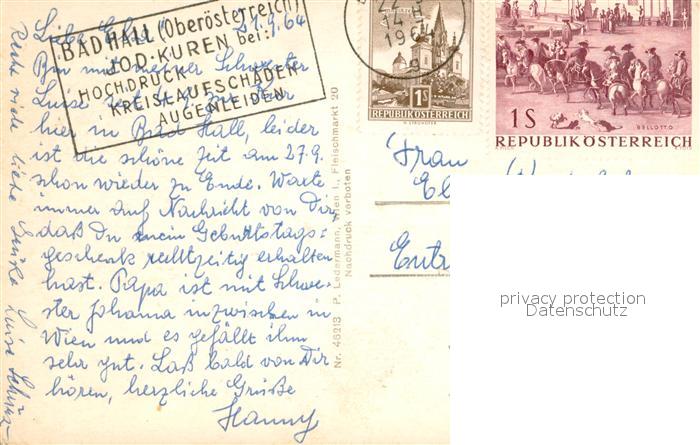 BAD HALL (Oberösterreich)
JOD-KUREN bei:
HOCHDRUCK
KREISLAUFSCHÄDEN
AUGENLEIDEN
21.9.64
Bin mit meiner Schwester
Luise
hier in Bad Hall, leider
ist die schöne Zeit am 27.9.
schon wieder zu Ende. Warte
immer auf Nachricht von Dir,
daß Du mein Geburtstags=
geschenk rechtzeitig erhalten
hast. Papa ist mit Schwe-
ster Johanna inzwischen in
Wien und es gefällt ihm
sehr gut. Laß bald von Dir
hören, herzliche Grüße
Hanny
Recht viele liebe Grüße Luise
Nr. 46213 P. Ledermann, Wien I., Fleischmarkt 20
Nachdruck verboten
14
1964
9
1S
REPUBLIK ÖSTERREICH
1S
BELLOTTO
REPUBLIK ÖSTERREICH
Frau
El
Entr
privacy protection
Datenschutz